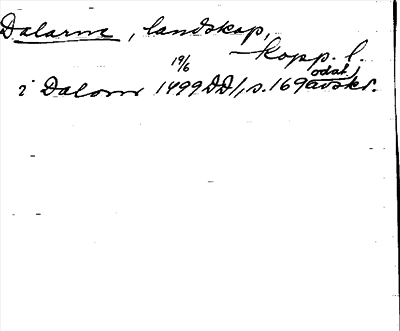 Dalarne, landskap,
Kopp. l.
19/6
i Dalom 1499 DD1, s. 169 odat. avskr.